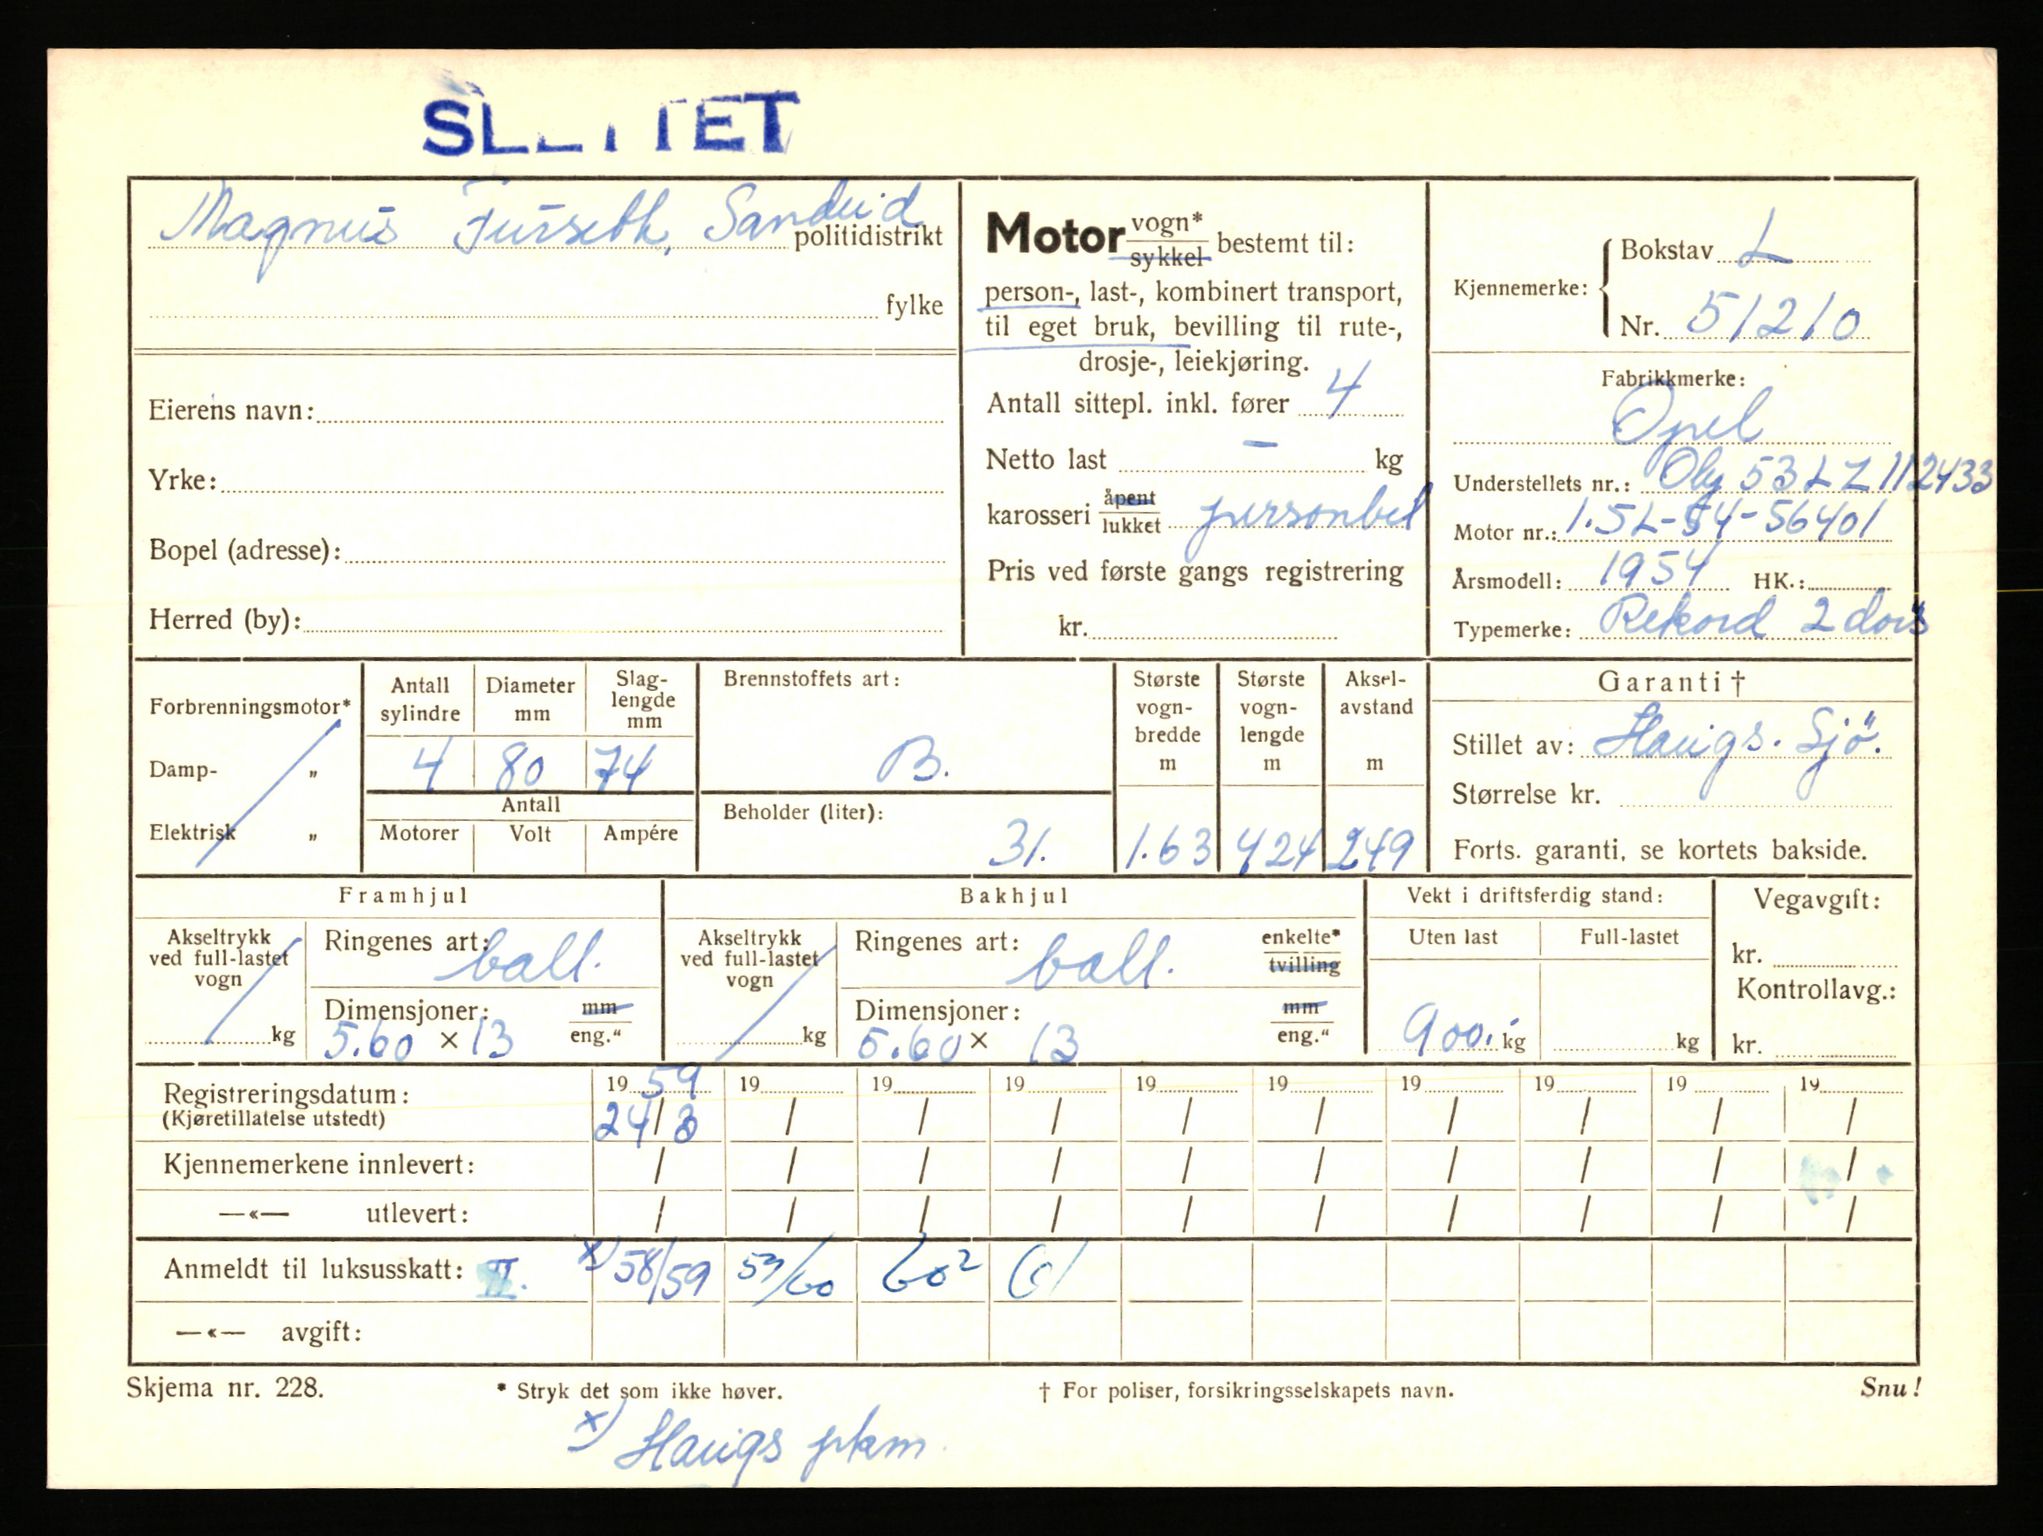 SLETTET
Magnus Furseth, Sandeid
politidistrikt
fylke
Eierens navn:
Yrke:
Bopel (adresse):
Herred (by):
Motor vogn* / sykkel bestemt til:
person-, last-, kombinert transport,
til eget bruk, bevilling til rute-,
drosje-, leiekjøring.
Antall sittepl. inkl. fører 4
Netto last — kg
karosseri åpent / lukket personbil
Pris ved første gangs registrering
kr.
Kjennemerke: Bokstav L
Nr. 51210
Fabrikkmerke:
Opel
Understellets nr.: Oly 53 LZ 112433
Motor nr.: 1.5L-54-56401
Årsmodell: 1954 HK.:
Typemerke: Rekord 2 dørs
Forbrenningsmotor*
Damp- „
Elektrisk „
Antall sylindre 4
Diameter mm 80
Slag-lengde mm 74
Antall
Motorer Volt Ampére
Brennstoffets art:
B.
Beholder (liter):
31.
Største vogn-bredde m 1.63
Største vogn-lengde m 424
Aksel-avstand m 249
Garanti †
Stillet av: Haugs. Sjø.
Størrelse kr.
Forts. garanti, se kortets bakside.
Framhjul
Akseltrykk ved full-lastet vogn kg
Ringenes art: ball.
Dimensjoner: mm / eng.“
5.60 × 13
Bakhjul
Akseltrykk ved full-lastet vogn kg
Ringenes art: ball. enkelte* / tvilling
Dimensjoner: mm / eng.“
5.60 × 13
Vekt i driftsferdig stand:
Uten last Full-lastet
900.- kg kg
Vegavgift:
kr.
Kontrollavg.:
kr.
Registreringsdatum: 19 59 19 19 19 19 19 19 19 19 19
(Kjøretillatelse utstedt) 24/3 / / / / / / / / /
Kjennemerkene innlevert: / / / / / / / / / /
—«— utlevert: / / / / / / / / / /
Anmeldt til luksusskatt: II. x) 58/59 59/60 60² 61
—«— avgift:
Skjema nr. 228. * Stryk det som ikke høver. † For poliser, forsikringsselskapets navn. Snu!
x) Haugs pkm